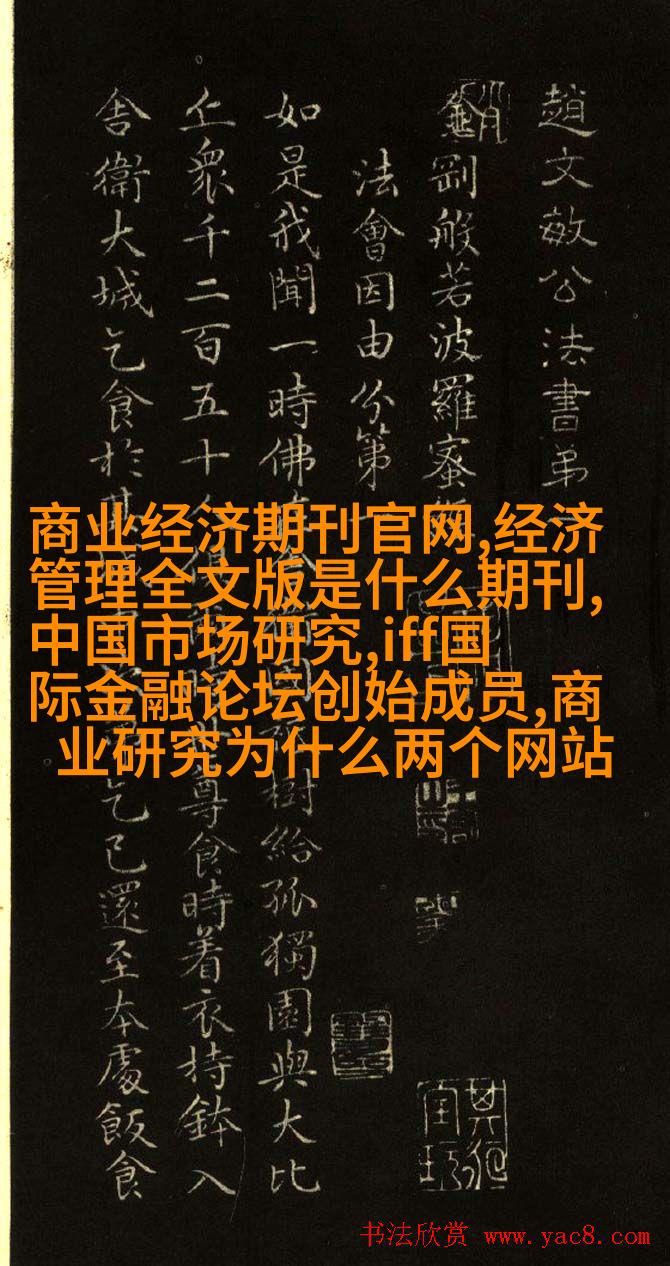 趙文敏公法書弟
金剛般若波羅蜜
法會因由分第一
如是我聞一時佛 樹給孤獨園與大比
丘眾千二百五十 尊食時着衣持鉢入
舍衛大城乞食於其 乞已還至本處飯食
商业经济期刊官网,经济
管理全文版是什么期刊,
中国市场研究,iff国
际金融论坛创始成员,商
业研究为什么两个网站
书法欣赏 www.yac8.com